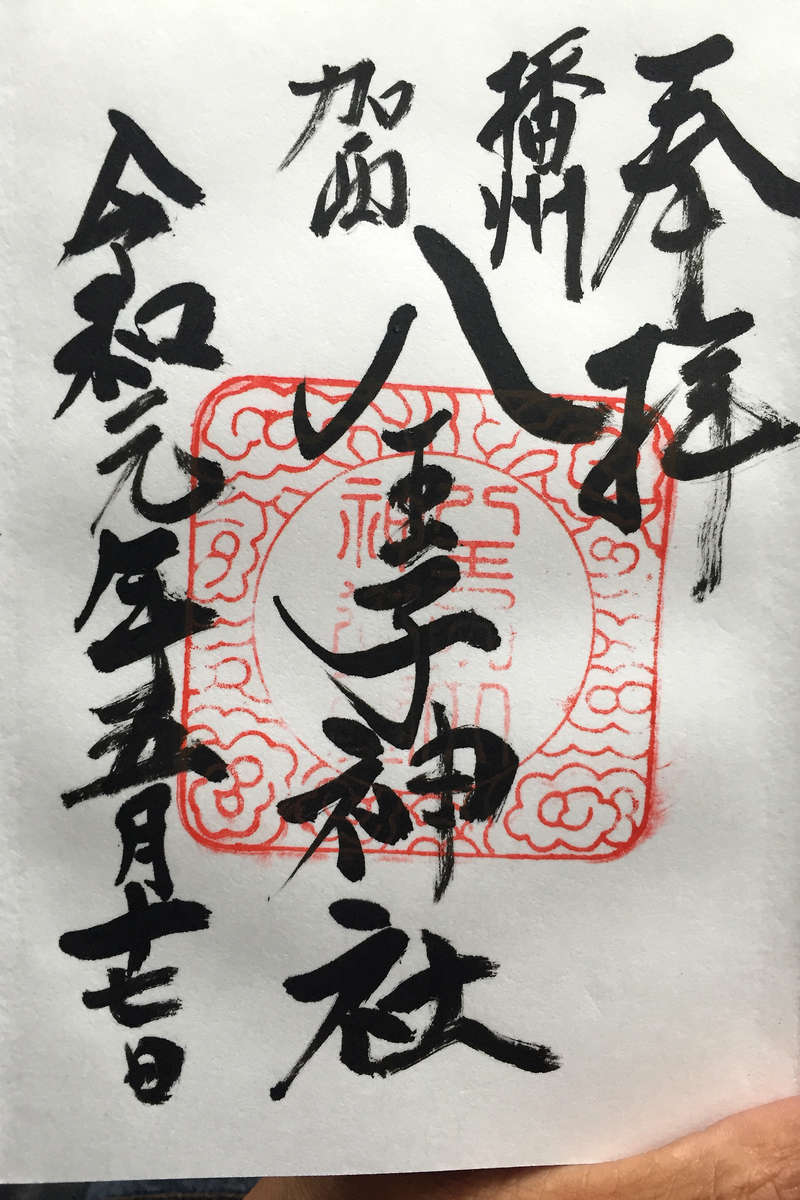 奉拝
播州
加西
八王子神社
令和元年五月十七日